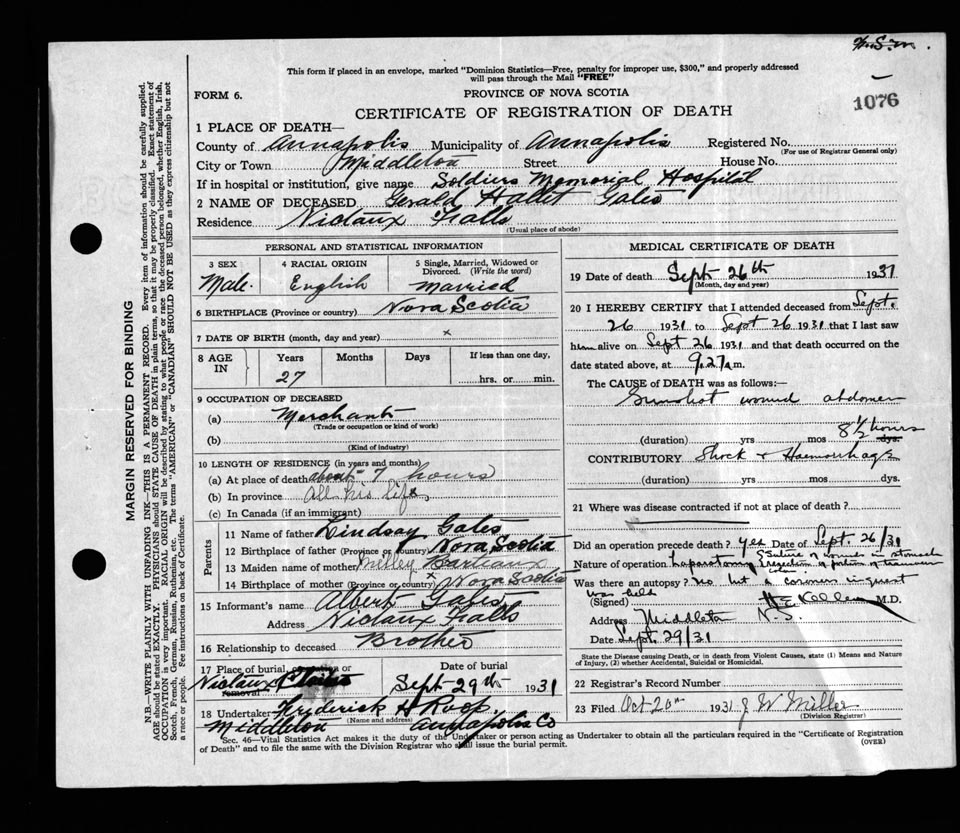 Wm.S.M.
This form if placed in an envelope, marked "Dominion Statistics—Free, penalty for improper use, $300," and properly addressed
will pass through the Mail "FREE"
FORM 6. PROVINCE OF NOVA SCOTIA
1076
CERTIFICATE OF REGISTRATION OF DEATH
1 PLACE OF DEATH—
County of Annapolis Municipality of Annapolis Registered No.
(For use of Registrar General only)
City or Town Middleton Street House No.
If in hospital or institution, give name Soldiers Memorial Hospital
2 NAME OF DECEASED Gerald Hallet Gates
Residence Nictaux Falls
(Usual place of abode)
PERSONAL AND STATISTICAL INFORMATION
3 SEX 4 RACIAL ORIGIN 5 Single, Married, Widowed or
Divorced. (Write the word)
Male English Married
6 BIRTHPLACE (Province or country) Nova Scotia
7 DATE OF BIRTH (month, day and year) x
8 AGE IN Years Months Days If less than one day,
27 hrs. or min.
9 OCCUPATION OF DECEASED
(a) Merchant
(Trade or occupation or kind of work)
(b)
(Kind of industry)
10 LENGTH OF RESIDENCE (in years and months)
(a) At place of death about 7 hours
(b) In province All his life
(c) In Canada (if an immigrant)
Parents
11 Name of father Lindsay Gates
12 Birthplace of father (Province or country) Nova Scotia
13 Maiden name of mother Barteaux
14 Birthplace of mother (Province or country) x Nova Scotia
15 Informant's name Albert Gates
Address Nictaux Falls
16 Relationship to deceased Brother
17 Place of burial, cremation or Date of burial
removal Nictaux Sept 29th 1931
18 Undertaker Frederick H Roop.
(Name and address)
Middleton Annapolis Co
MEDICAL CERTIFICATE OF DEATH
19 Date of death Sept 26th 1931
(Month, day and year)
20 I HEREBY CERTIFY that I attended deceased from Sept.
26 1931 to Sept 26 1931 that I last saw
him alive on Sept 26 1931 and that death occurred on the
date stated above, at 9.27 a.m.
The CAUSE OF DEATH was as follows:
Gunshot wound abdomen
(duration) yrs mos 8½ hours dys.
CONTRIBUTORY Shock & Haemorrhage
(duration) yrs. mos. dys.
21 Where was disease contracted if not at place of death?
Did an operation precede death? yes Date of Sept. 26/31
Nature of operation Laparotomy & suture of wounds in stomach
& resection of portion of transverse colon
Was there an autopsy? No but a coroners inquest
was held
(Signed) M.D.
Address Middleton N.S.
Date Sept. 29/31
State the Disease causing Death, or in death from Violent Causes, state (1) Means and
Nature of Injury, (2) whether Accidental, Suicidal or Homicidal.
22 Registrar's Record Number
23 Filed Oct 20th 1931 J W Miller
(Division Registrar)
Sec. 46—Vital Statistics Act makes it the duty of the Undertaker or person acting as Undertaker to obtain all the particulars required in the "Certificate of Registration
of Death" and to file the same with the Division Registrar who shall issue the burial permit. (OVER)
MARGIN RESERVED FOR BINDING
N.B.—WRITE PLAINLY WITH UNFADING INK—THIS IS A PERMANENT RECORD. Every item of information should be carefully supplied.
AGE should be stated EXACTLY. PHYSICIANS should STATE CAUSE OF DEATH in plain terms, so that it may be properly classified. Exact statement of
OCCUPATION is very important. RACIAL ORIGIN will be described by stating to what people or race the deceased person belonged, whether English, Irish,
Scotch, French, German, Russian, Ruthenian, etc. The terms "AMERICAN" or "CANADIAN" SHOULD NOT BE USED as they express citizenship but not
a race or people. See instructions on back of Certificate.